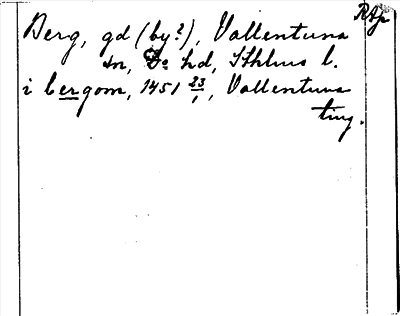 RAp
Berg, gd (by?), Vallentuna
sn, Do hd, Sthlms l.
i bergom, 1451 23/1, Vallentuna
ting.